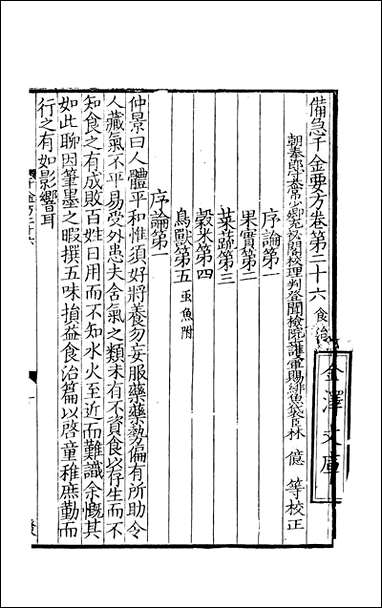 備急千金要方卷第二十六 食治
金澤文庫
朝奉郎守太常少卿充祕閣校理判登聞檢院護軍賜緋魚袋臣林 億 等校正
序論第一
果實第二
菜蔬第三
穀米第四
鳥獸第五 虫魚附
序論第一
仲景曰人體平和惟須好將養勿妄服藥藥勢偏有所助令
人藏氣不平易受外患夫含氣之類未有不資食以存生而不
知食之有成敗百姓日用而不知水火至近而難識余慨其
如此聊因筆墨之暇撰五味損益食治篇以啓童稚庶勤而
行之有如影響耳